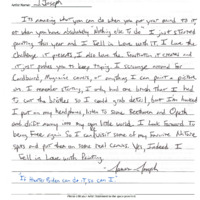 Artist Name: J Joseph
It's amazing what you can do when you put your mind to it
or when you have absolutely nothing else to do. I just started
painting this year and I fell in love with it. I love the
challenge it presents, I also love the frustration it creates and
it just makes you to keep trying. I scrounge around for
Cardboard, Magazine covers, or anything I can paint a picture
on. I remember starting, I only had one brush that I had
to cut the bristles so I could grab detail, but I
put on my headphones, listen to some Beethoven and Opeth
and drift away into my own little world. I look forward to
being free again so I can visit some of my favorite Nature
spots and put them on some real canvas. Yes, Indeed I
fell in love with Painting.
Joseph
If can do it, so can I